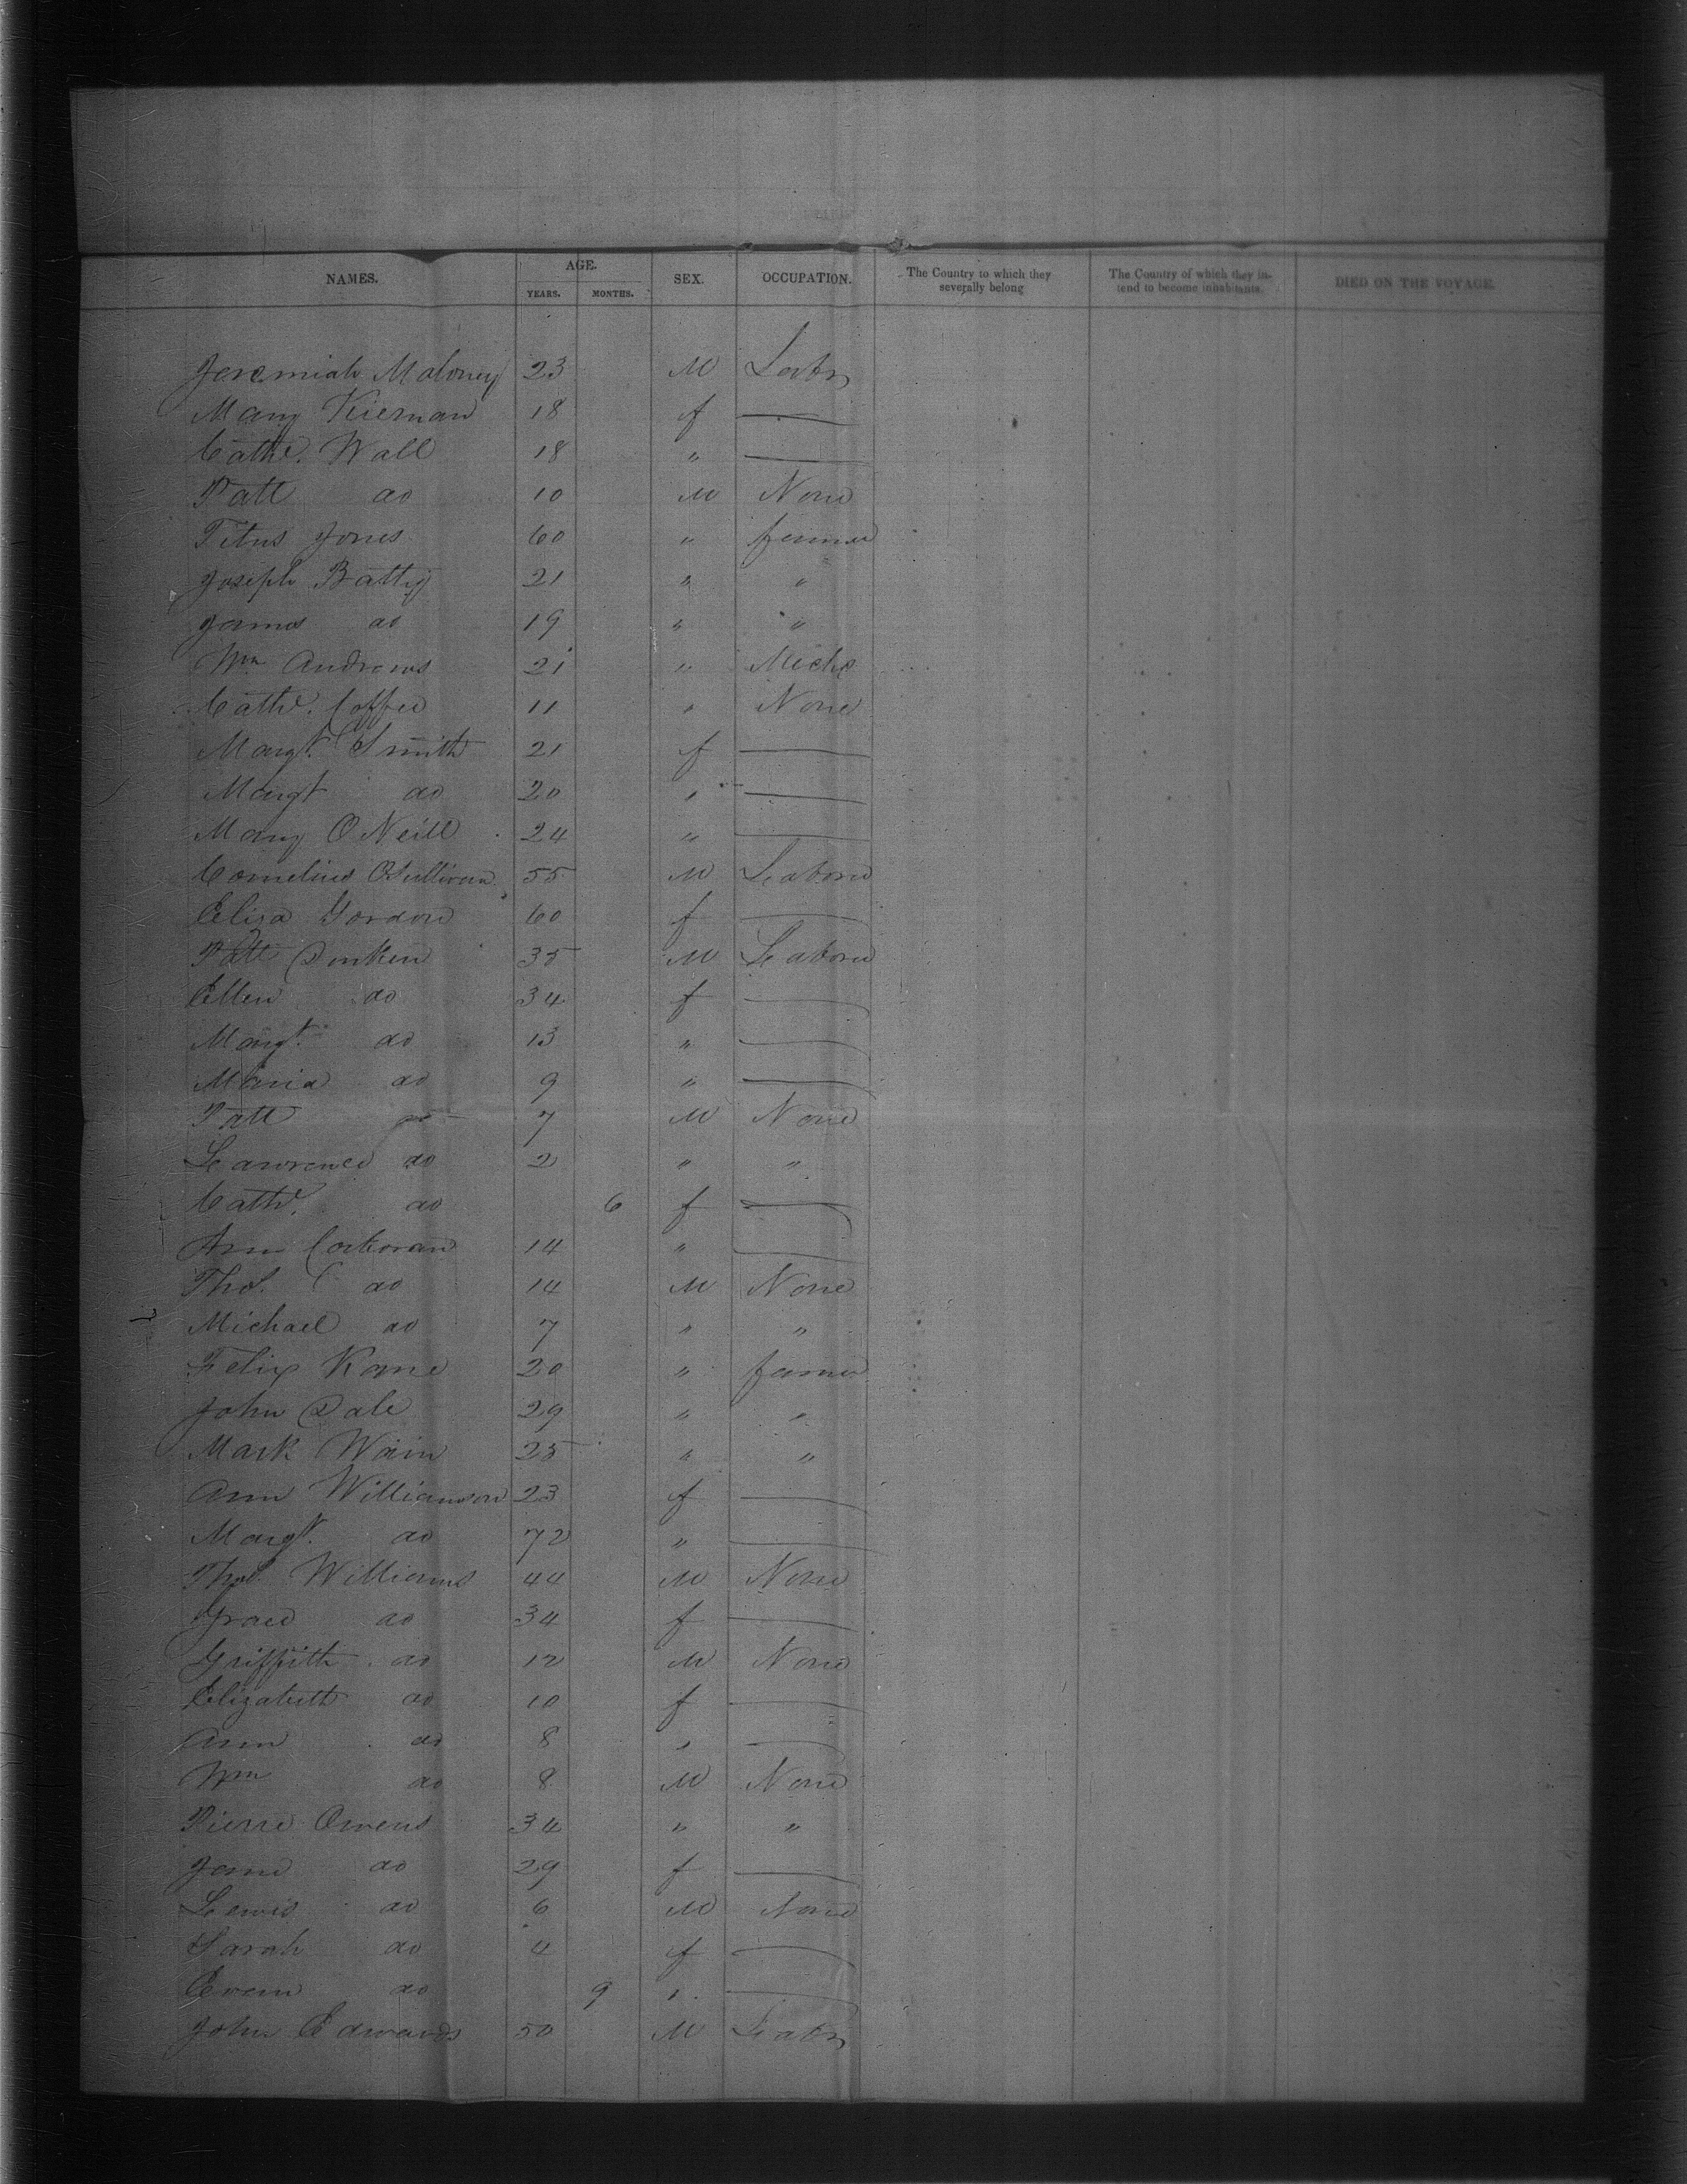 NAMES. AGE. YEARS. MONTHS. SEX. OCCUPATION. The Country to which they severally belong The Country of which they intend to become inhabitants. DIED ON THE VOYAGE.
Jeremiah Maloney 23 M Labr
Mary Kiernan 18 f —
Cathe. Wall 18 " —
Patt do 10 M None
Titus Jones 60 " farmer
Joseph Batty 21 " "
James do 19 " "
Wm Andrews 21 " Mechc
Cathe. Coffee 11 " None
Margt. Smith 21 f —
Margt do 20 " —
Mary O Neill 24 " —
Cornelius OSullivan 55 M Labore
Eliza Gordon 60 f —
Patt Durken 35 M Labore
Ellen do 34 f —
Margt. do 13 " —
Maria do 9 " —
Patt do 7 M None
Lawrence do 2 " "
Cathe. do 6 f —
Ann Corkoran 14 " —
Thos. do 14 M None
Michael do 7 " "
Felix Kane 20 " farmer
John Dale 29 " "
Mark Wain 25 " "
Ann Williamson 23 f —
Margt. do 72 " —
Thos. Williams 44 M None
Grace do 34 f —
Griffith do 12 M None
Elizabeth do 10 f —
Ann do 8 " —
Wm do 8 M None
Pierre Owens 34 " "
Jane do 29 f —
Lewis do 6 M None
Sarah do 4 f —
Evan do 9 " —
John Edwards 50 M Labr